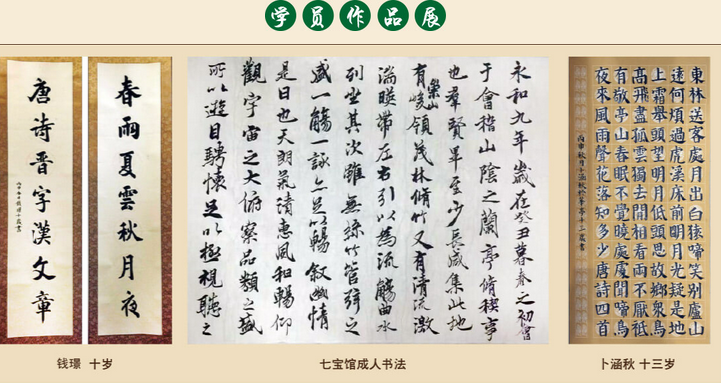 学员作品展
春雨夏雲秋月夜
唐詩晋字漢文章
钱璟 十岁
永和九年歲在癸丑暮春之初會
于會稽山陰之蘭亭脩稧事
也羣賢畢至少長咸集此地
有崇山峻領茂林脩竹又有清流激
湍暎帶左右引以為流觴曲水
列坐其次雖無絲竹管弦之
盛一觴一詠亦足以暢叙幽情
是日也天朗氣清惠風和暢仰
觀宇宙之大俯察品類之盛
所以遊目騁懷足以極視聽之
七宝馆成人书法
東林送客處月出白猿啼笑别廬山
遠何煩過虎溪床前明月光疑是地
上霜舉頭望明月低頭思故鄉衆鳥
高飛盡孤雲獨去閒相看兩不厭祇
有敬亭山春眠不覺曉處處聞啼鳥
夜來風雨聲花落知多少唐詩四首
卜涵秋 十三岁